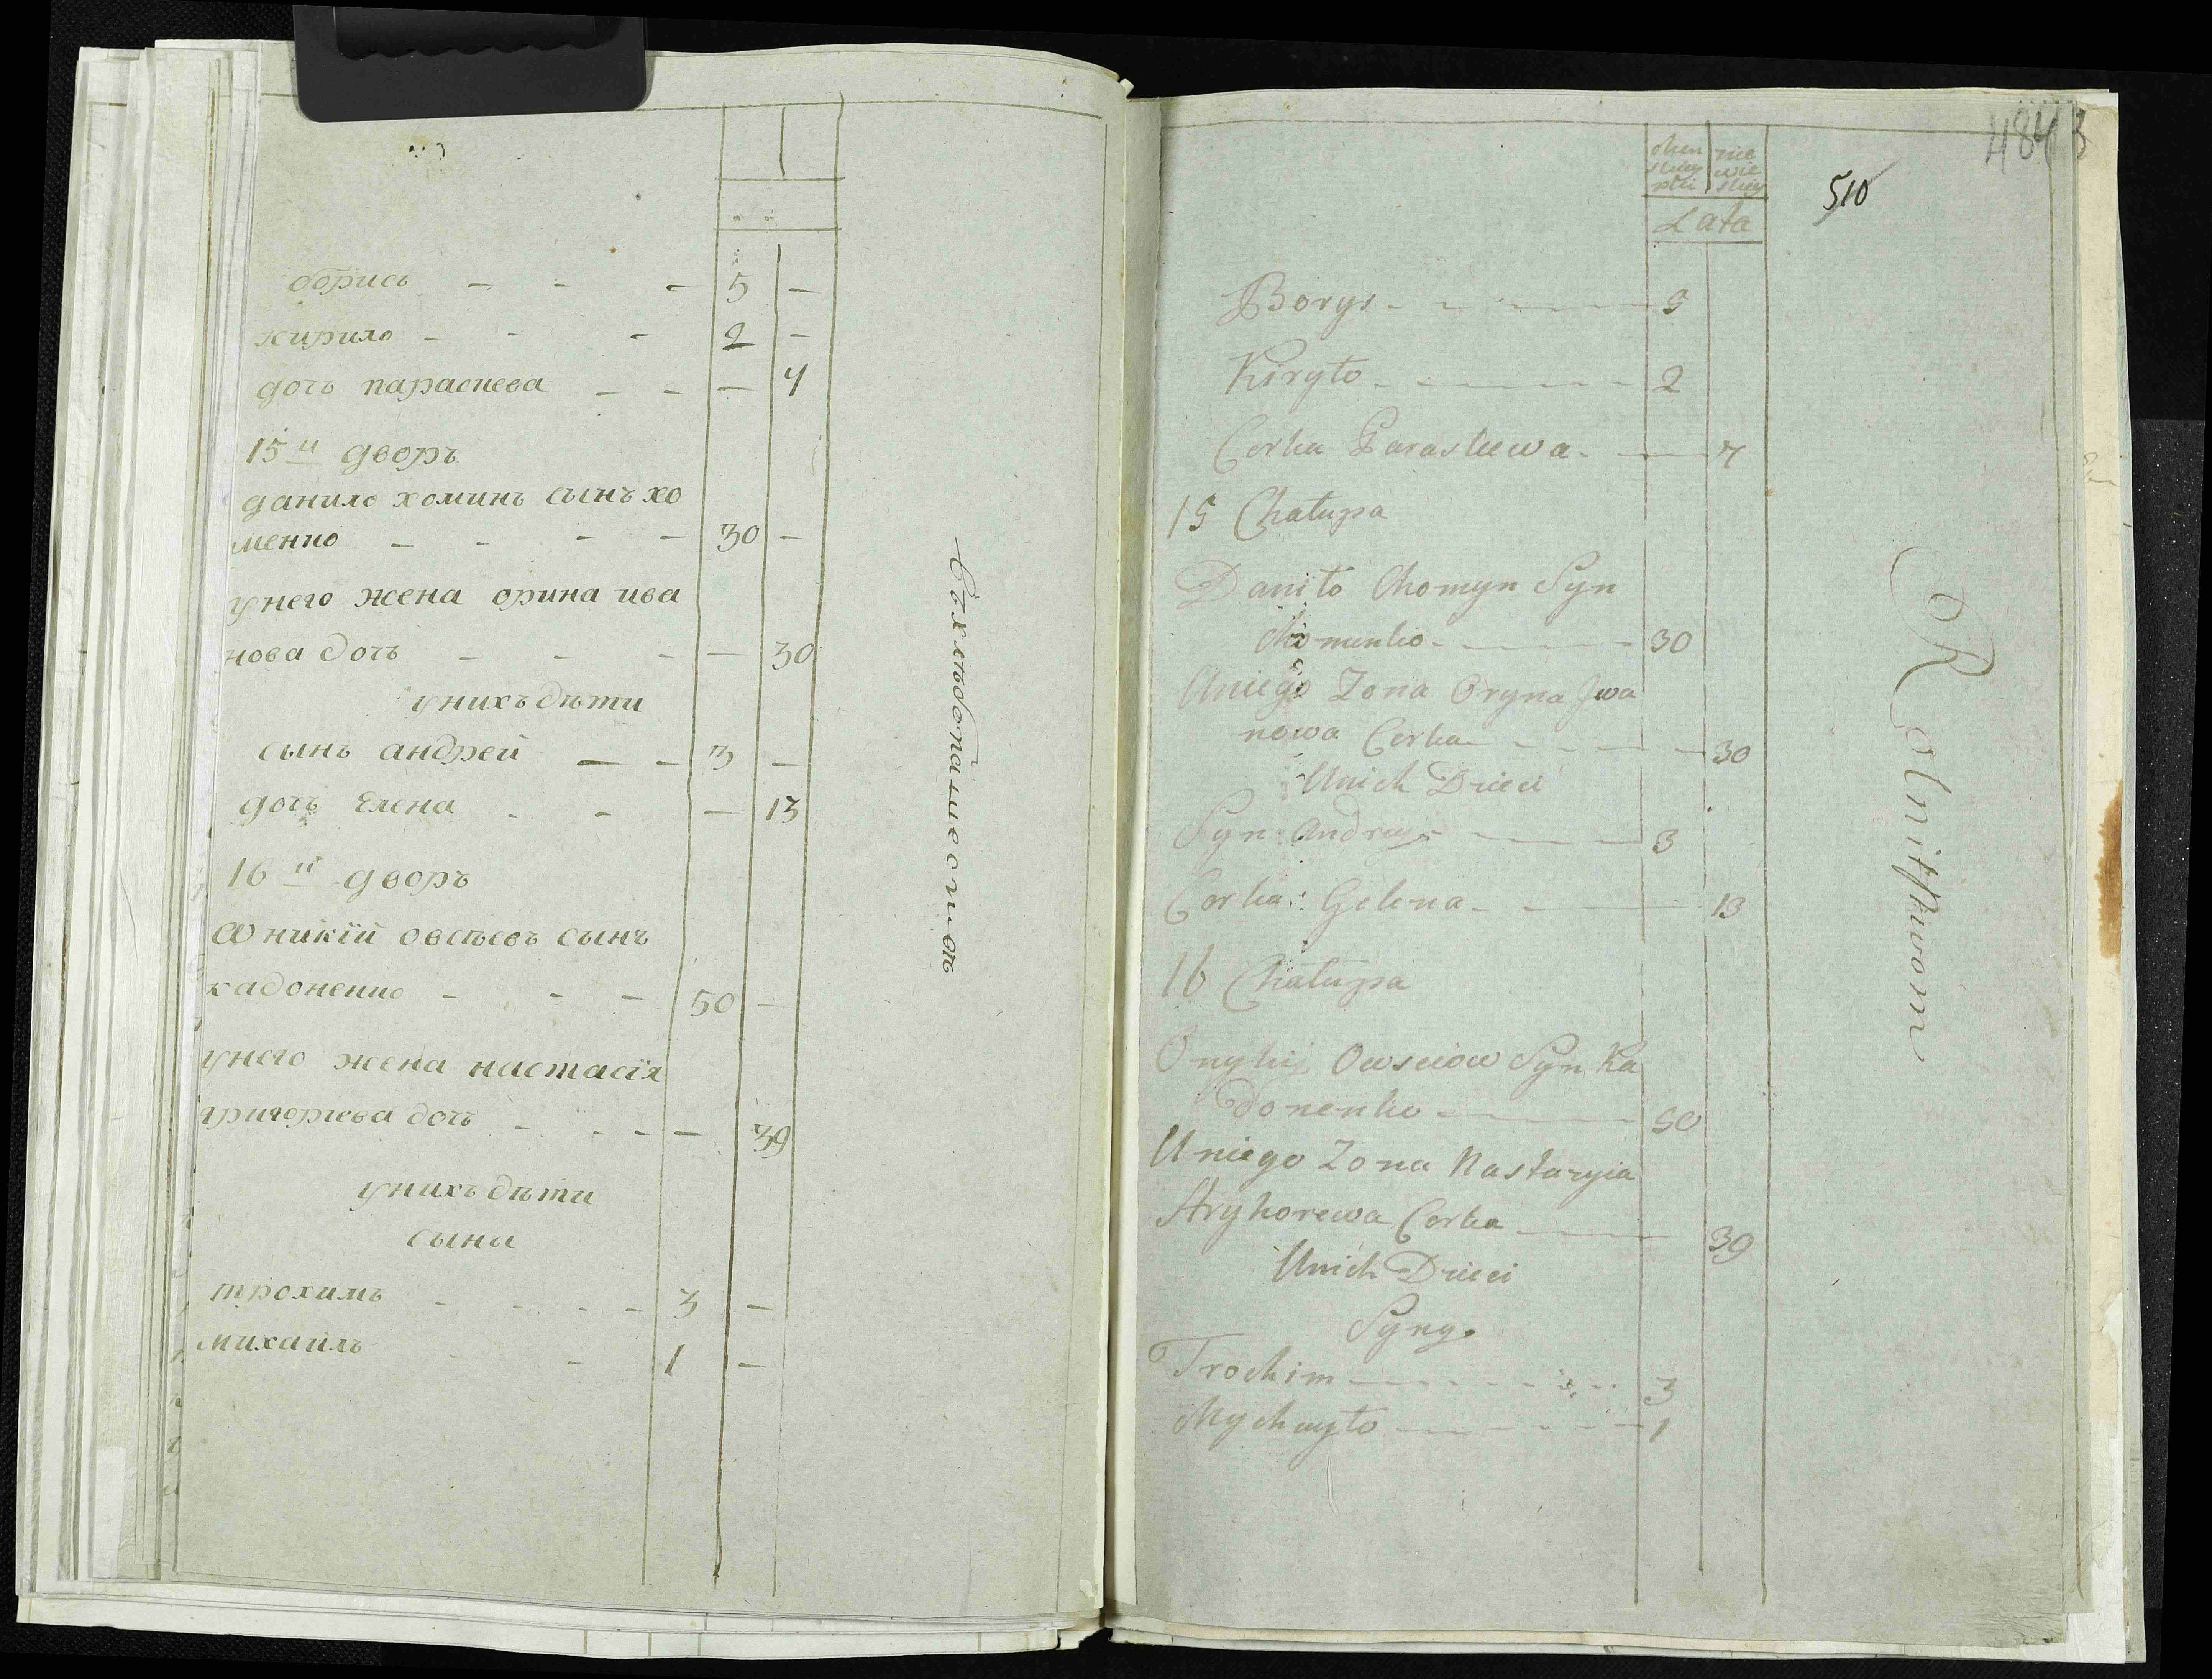 борисъ - - - 5 -
кирило - - - 2 -
дочь параскева - - - 7
15й дворъ
данило хоминъ сынъ хо
менко - - - - 30 -
у него жена орина ива
нова дочь - - - - 30
у нихъ дѣти
сынъ андрей - - 3 -
дочь елена - - - 13
16й дворъ
ѡникій овсѣевъ сынъ
кадоненко - - - 50 -
у него жена настасія
григорева дочь - - - - - 39
у нихъ дѣти
сыни
трохимъ - - - - 3 -
михаилъ - - 1 -
Въ хлѣбопашествѣ
484
510
nie
wie
skiey
Lata
Borys - - - - 5
Kiryło - - - - 2
Corka Paraskewa - - 7
15 Chałupa
Daniło Chomyn Syn
Chomenko - - - - 30
Uniego Zona Oryna Jwa
nowa Corka - - - - 30
Unich Dzieci
Syn Andrey - - - 3
Corka Gelena - - - 13
16 Chałupa
Onykij Owseiow Syn Ka
donenko - - - 50
Uniego Zona Nastazyia
Hryhorewa Corka - - 39
Unich Dzieci
Syny
Trochim - - - - - 3
Mychayło - - - - - 1
Rolnitstwom